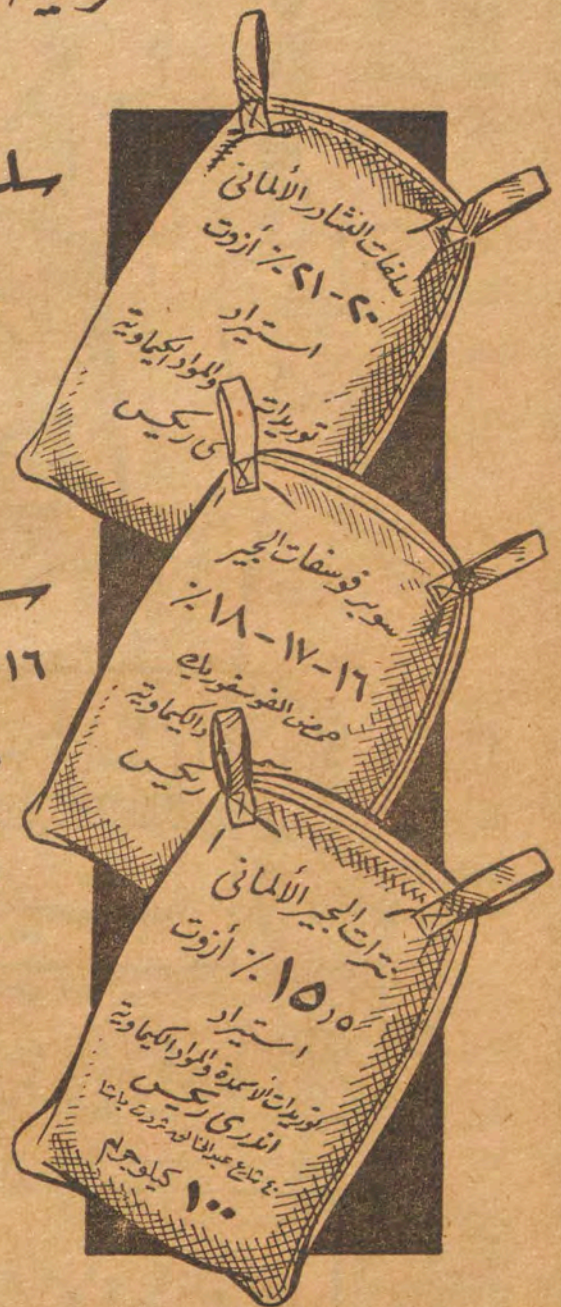 سلفات النشادر الألماني
٢٠-٢١ ٪ أزوت
استيراد
توريدات والمواد الكيماوية
ريكس
سوبر فوسفات الجير
١٦-١٧-١٨ ٪
حمض الفوسفوريك
الكيماوية
ريكس
١٦
نترات الجير الألماني
١٥٫٥ ٪ أزوت
استيراد
توريدات الأسمدة والمواد الكيماوية
اندرى ريكس
٤٠ شارع عبد الخالق ثروت باشا
١٠٠ كيلوجرام